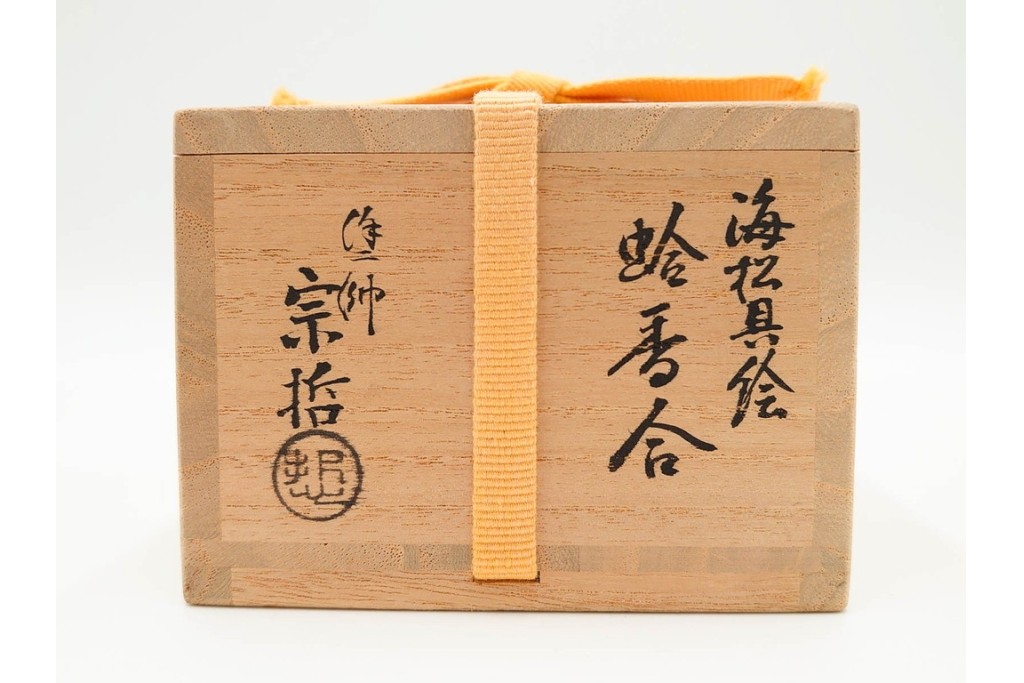 海松貝絵
蛤香合
塗師
宗哲